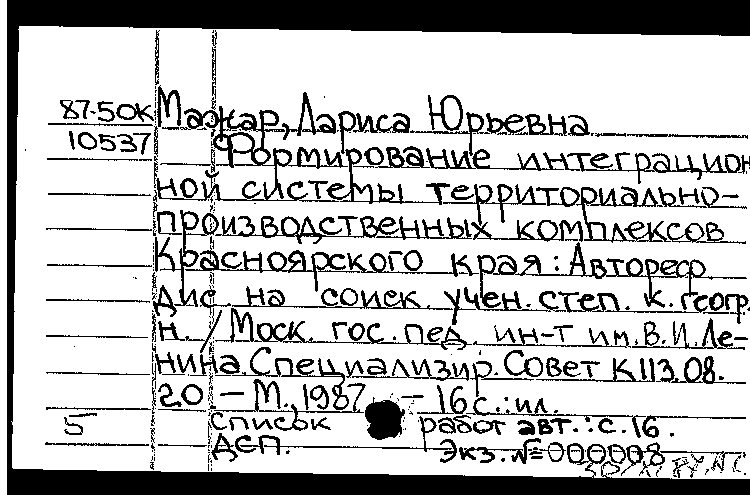 87-50К Мажар, Лариса Юрьевна
10537 Формирование интеграцион
ной системы территориально-
производственных комплексов
Красноярского края: Автореф.
дис. на соиск. учен. степ. к. геогр.
н. / Моск. гос. пед. ин-т им. В. И. Ле-
нина. Специализир. Совет К 113.08.
20 - М., 1987 - 16 с.: ил.
5 Список работ авт.: с. 16.
ДСП. Экз. №000008